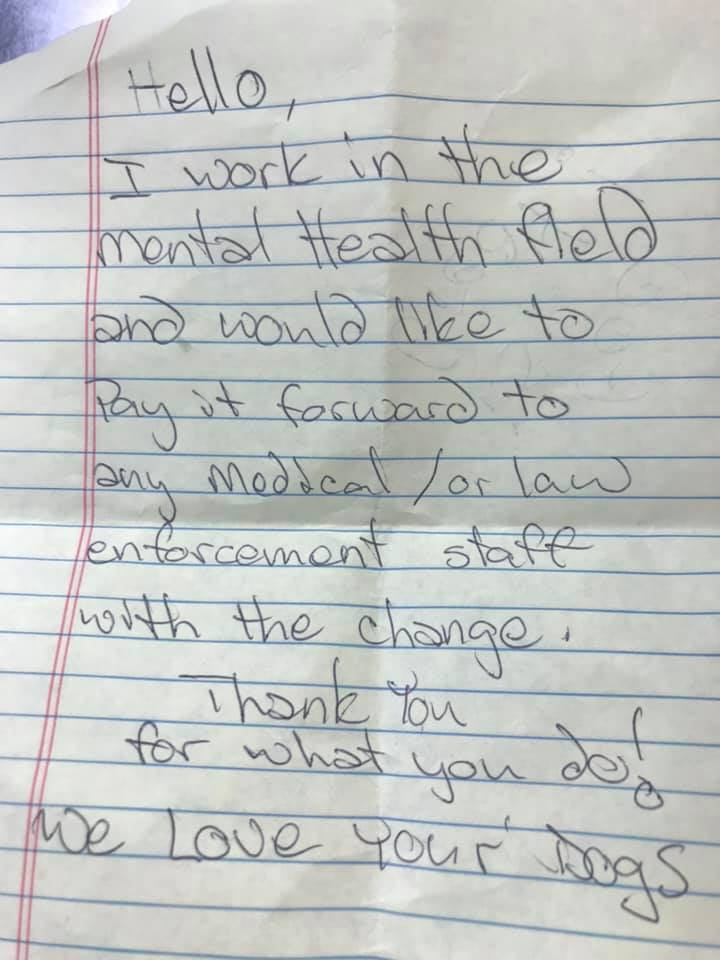 Hello,
I work in the
mental Health field
and would like to
Pay it forward to
any Medical / or law
enforcement staff
with the change.
Thank You
for what you do!
We Love Your Dogs